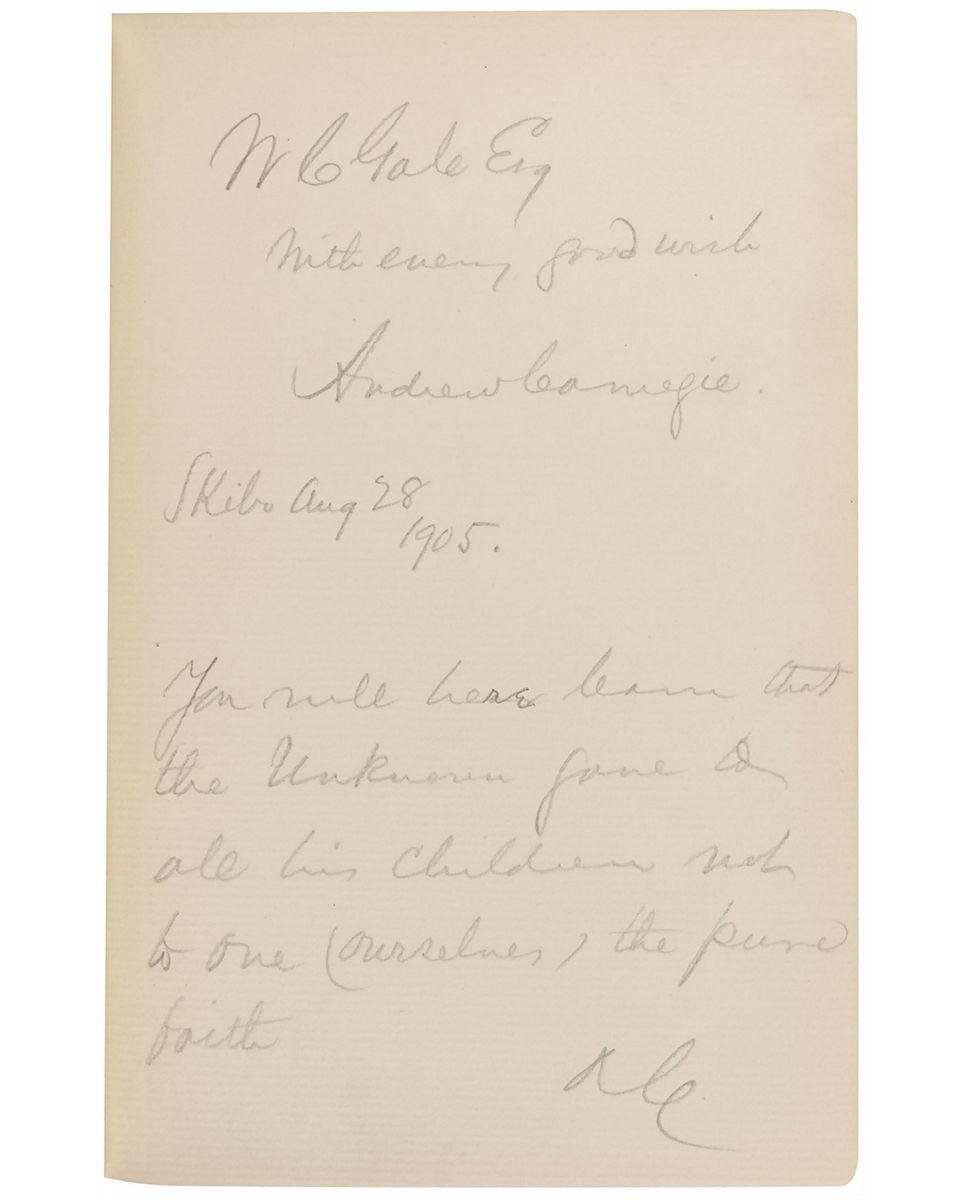 W C Gale Esq
With every good wish
Andrew Carnegie.
Skibo Aug 28
1905.
You will here learn that
the Unknown gave to
all his children not
to one (ourselves) the pure
faith
AC